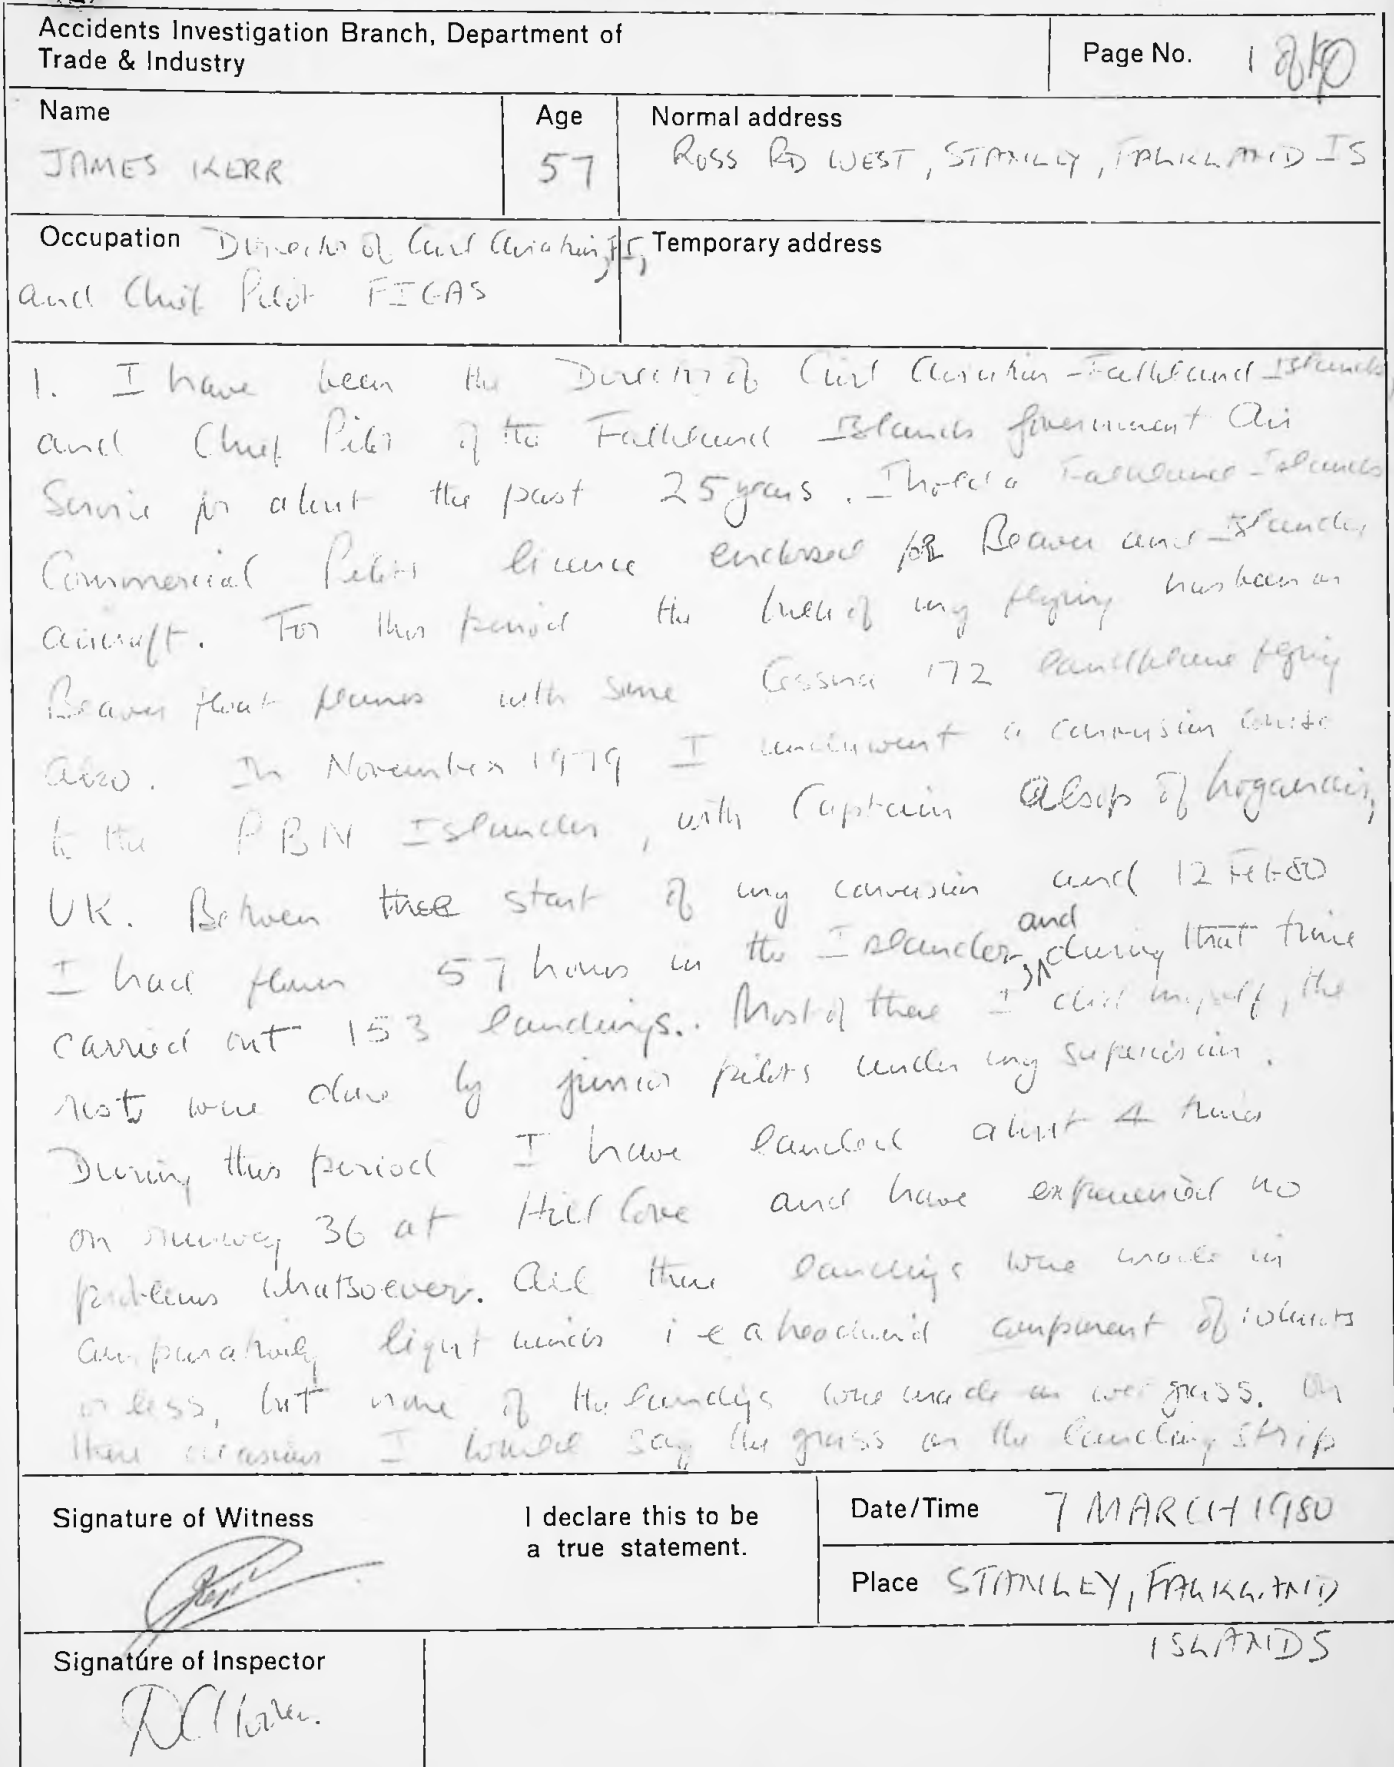 Accidents Investigation Branch, Department of
Trade & Industry
Page No. 1 of 10
Name
JAMES KERR
Age
57
Normal address
ROSS RD WEST, STANLEY, FALKLAND IS
Occupation Director of Civil Aviation, FI,
and Chief Pilot FIGAS
Temporary address
1. I have been the Director of Civil Aviation - Falkland Islands
and Chief Pilot of the Falkland Islands Government Air
Service for about the past 25 years. I hold a Falkland Islands
Commercial Pilots licence endorsed for Beaver and Islander
aircraft. For this period the bulk of my flying has been on
Beaver float planes with some Cessna 172 landplane flying
also. In November 1979 I underwent a conversion course
to the PBN Islander, with Captain Alsop of Loganair,
UK. Between the start of my conversion and 12 Feb 80
I had flown 57 hours in the Islander, and during that time
carried out 153 landings. Most of these I did myself, the
rest were done by junior pilots under my supervision.
During this period I have landed about 4 times
on runway 36 at Hill Cove and have experienced no
problems whatsoever. All these landings were made in
comparatively light winds i e a headwind component of 10 knots
or less, but none of the landings were made on wet grass. On
these occasions I would say the grass on the landing strip
Signature of Witness
I declare this to be
a true statement.
Date/Time 7 MARCH 1980
Place STANLEY, FALKLAND
ISLANDS
Signature of Inspector